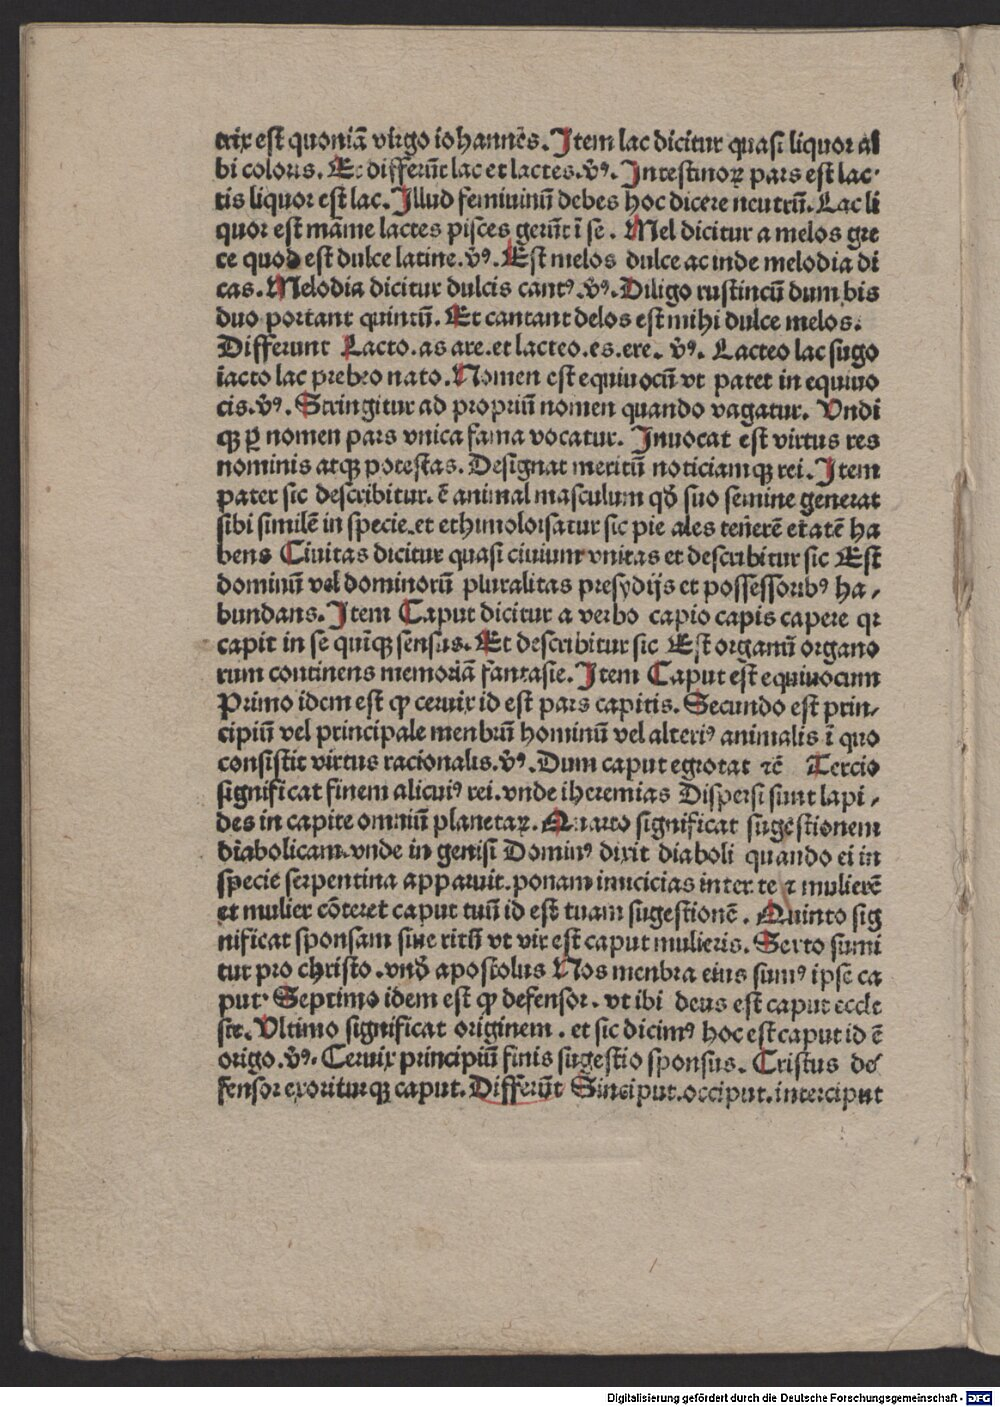 trix est quoniā virgo iohannēs. Item lac dicitur quasi liquor al
bi coloris. Et differūt lac et lactes.v̄ꝰ. Intestinoꝝ pars est lac·
tis liquor est lac. Illud femininū debes hoc dicere neutrū. Lac li
quor est māme lactes pisces gerūt ī se. Mel dicitur a melos gre
ce quod est dulce latine.v̄ꝰ. Est melos dulce ac inde melodia di
cas. Melodia dicitur dulcis cantꝰ.v̄ꝰ. Diligo rusticū dum bis
duo portant quintū. Et cantant delos est mihi dulce melos.
Differunt Lacto.as are.et lacteo.es.ere. v̄ꝰ. Lacteo lac sugo
lacto lac prebeo nato. Nomen est equiuocū vt patet in equiuo
cis.v̄ꝰ. Stringitur ad propriū nomen quando vagatur. Vndi
qꝫ ꝑ nomen pars vnica fama vocatur. Inuocat est virtus res
nominis atqꝫ potestas. Designat meritū noticiamqꝫ rei. Item
pater sic describitur. ē animal masculum qđ suo semine generat
sibi similē in specie.et ethimoloisatur sic pie ales tenerē etatē ha
bens Ciuitas dicitur quasi ciuium vnitas et describitur sic Est
dominū vel dominorū pluralitas presydijs et possessoribꝰ ha/
bundans. Item Caput dicitur a verbo capio capis capere qr
capit in se quīqꝫ sensus. Et describitur sic Est organū organo
rum continens memoriā fantasie. Item Caput est equiuocum
Primo idem est qꝙ ceruix id est pars capitis. Secundo est prin/
cipiū vel principale menbrū hominū vel alteriꝰ animalis ī quo
consistit virtus racionalis.v̄ꝰ. Dum caput egrotat ⁊c̄ Tercio
significat finem alicuiꝰ rei.vnde iheremias Dispersi sunt lapi/
des in capite omniū planetaꝝ. Quarto significat sugestionem
diabolicam.vnde in genesi Dominꝰ dixit diaboli quando ei in
specie serpentina apparuit.ponam inucicias inter te ⁊ mulierē
et mulier cōteret caput tuū id est tuam sugestionē. Quinto sig
nificat sponsam siue ritū vt vir est caput mulieris. Sexto sumi
tur pro christo.vnđ apostolus Nos menbra eius sumꝰ ipse ca
put· Septimo idem est qꝙ defensor. vt ibi deus est caput eccle
sie. Vltimo significat originem. et sic dicimꝰ hoc est caput id ē
origo.v̄ꝰ. Ceruix principiū finis sugestio sponsus. Cristus de/
fensor exoriturqꝫ caput. Differūt Sinciput.occiput.interciput
Digitalisierung gefördert durch die Deutsche Forschungsgemeinschaft - DFG